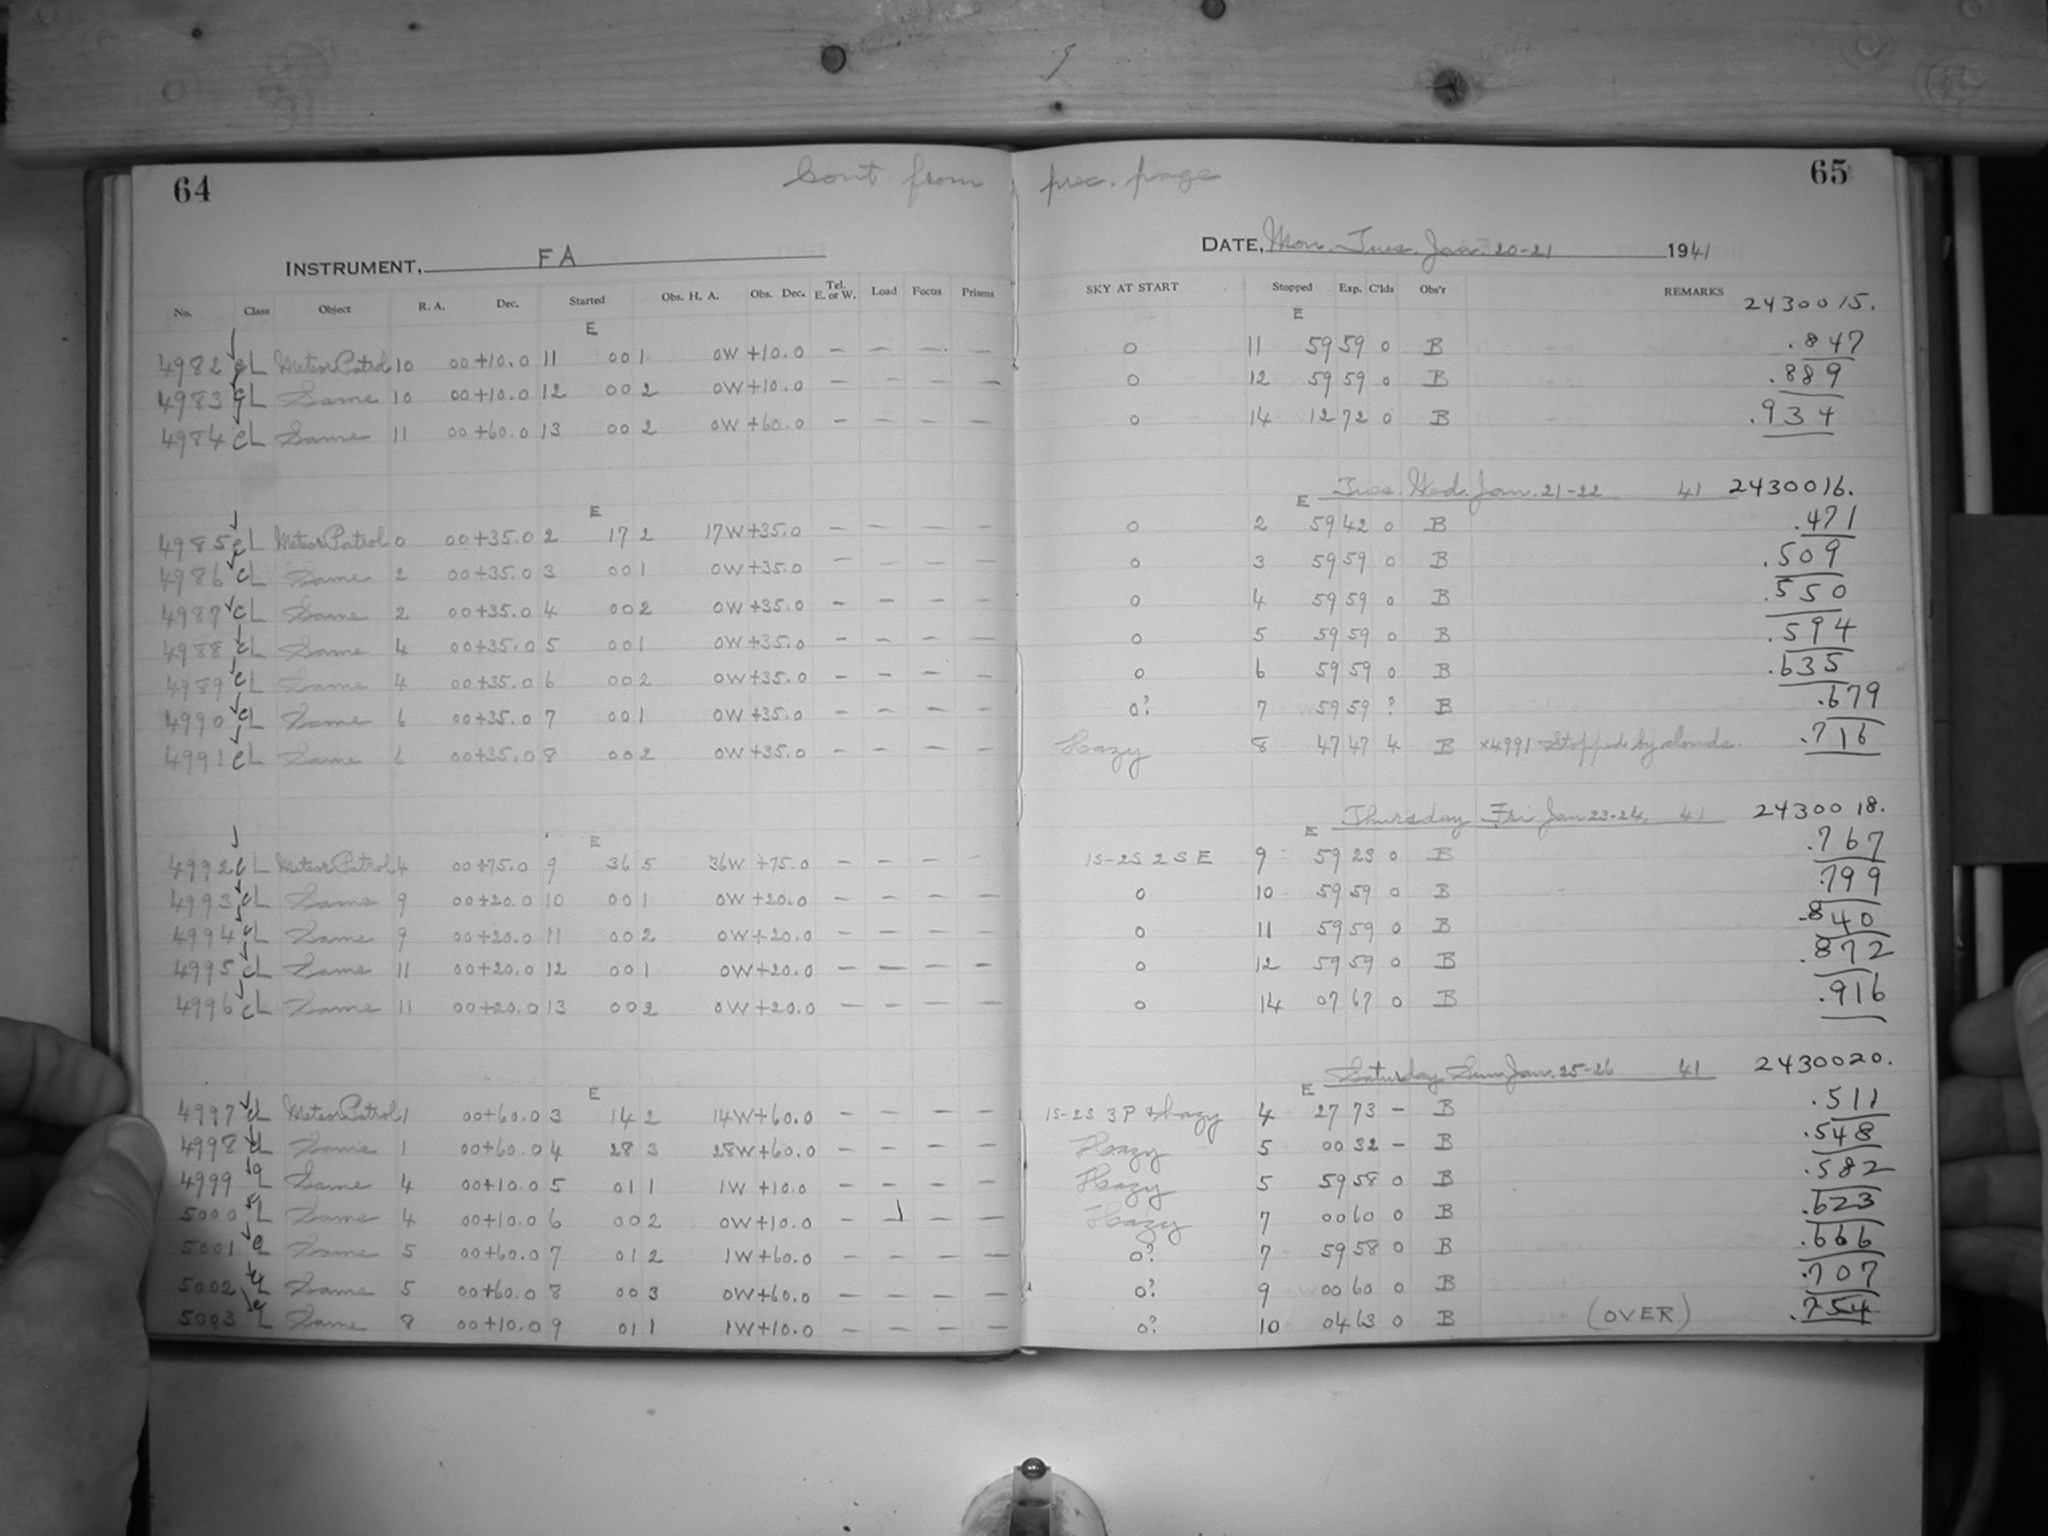 64 Cont from prec. page 65
INSTRUMENT, FA DATE, Mon. Tues. Jan. 20-21 1941
No. Class Object R. A. Dec. Started Obs. H. A. Obs. Dec. Tel. E. or W. Load Focus Prisms SKY AT START Stopped Exp. C'lds Obs'r REMARKS
E E 2430015.
4982 cL Meteor Patrol 10 00 +10.0 11 00 1 0W +10.0 — — — — 0 11 59 59 0 B .847
4983 cL Same 10 00 +10.0 12 00 2 0W +10.0 — — — — 0 12 59 59 0 B .889
4984 cL Same 11 00 +60.0 13 00 2 0W +60.0 — — — — 0 14 12 72 0 B .934
E E Tues. Wed. Jan. 21-22 41 2430016.
4985 cL Meteor Patrol 0 00 +35.0 2 17 2 17W +35.0 — — — — 0 2 59 42 0 B .471
4986 cL Same 2 00 +35.0 3 00 1 0W +35.0 — — — — 0 3 59 59 0 B .509
4987 cL Same 2 00 +35.0 4 00 2 0W +35.0 — — — — 0 4 59 59 0 B .550
4988 cL Same 4 00 +35.0 5 00 1 0W +35.0 — — — — 0 5 59 59 0 B .594
4989 cL Same 4 00 +35.0 6 00 2 0W +35.0 — — — — 0 6 59 59 0 B .635
4990 cL Same 6 00 +35.0 7 00 1 0W +35.0 — — — — 0? 7 59 59 ? B .679
4991 cL Same 6 00 +35.0 8 00 2 0W +35.0 — — — — Hazy 8 47 47 4 B x4991 Stopped by clouds. .716
E E Thursday Fri. Jan 23-24, 41 2430018.
4992 cL Meteor Patrol 4 00 +75.0 9 36 5 36W +75.0 — — — — 1S-2S 2 S E 9 59 23 0 B .767
4993 cL Same 9 00 +20.0 10 00 1 0W +20.0 — — — — 0 10 59 59 0 B .799
4994 cL Same 9 00 +20.0 11 00 2 0W +20.0 — — — — 0 11 59 59 0 B .840
4995 cL Same 11 00 +20.0 12 00 1 0W +20.0 — — — — 0 12 59 59 0 B .872
4996 cL Same 11 00 +20.0 13 00 2 0W +20.0 — — — — 0 14 07 67 0 B .916
E E Saturday Sun. Jan. 25-26 41 2430020.
4997 cL Meteor Patrol 1 00 +60.0 3 14 2 14W +60.0 — — — — 1S-2S 3 P & hazy 4 27 73 — B .511
4998 cL Same 1 00 +60.0 4 28 3 28W +60.0 — — — — Hazy 5 00 32 — B .548
4999 cL Same 4 00 +10.0 5 01 1 1W +10.0 — — — — Hazy 5 59 58 0 B .582
5000 cL Same 4 00 +10.0 6 00 2 0W +10.0 — — — — Hazy 7 00 60 0 B .623
5001 cL Same 5 00 +60.0 7 01 2 1W +60.0 — — — — 0? 7 59 58 0 B .666
5002 cL Same 5 00 +60.0 8 00 3 0W +60.0 — — — — 0? 9 00 60 0 B .707
5003 cL Same 8 00 +10.0 9 01 1 1W +10.0 — — — — 0? 10 04 63 0 B (OVER) .754